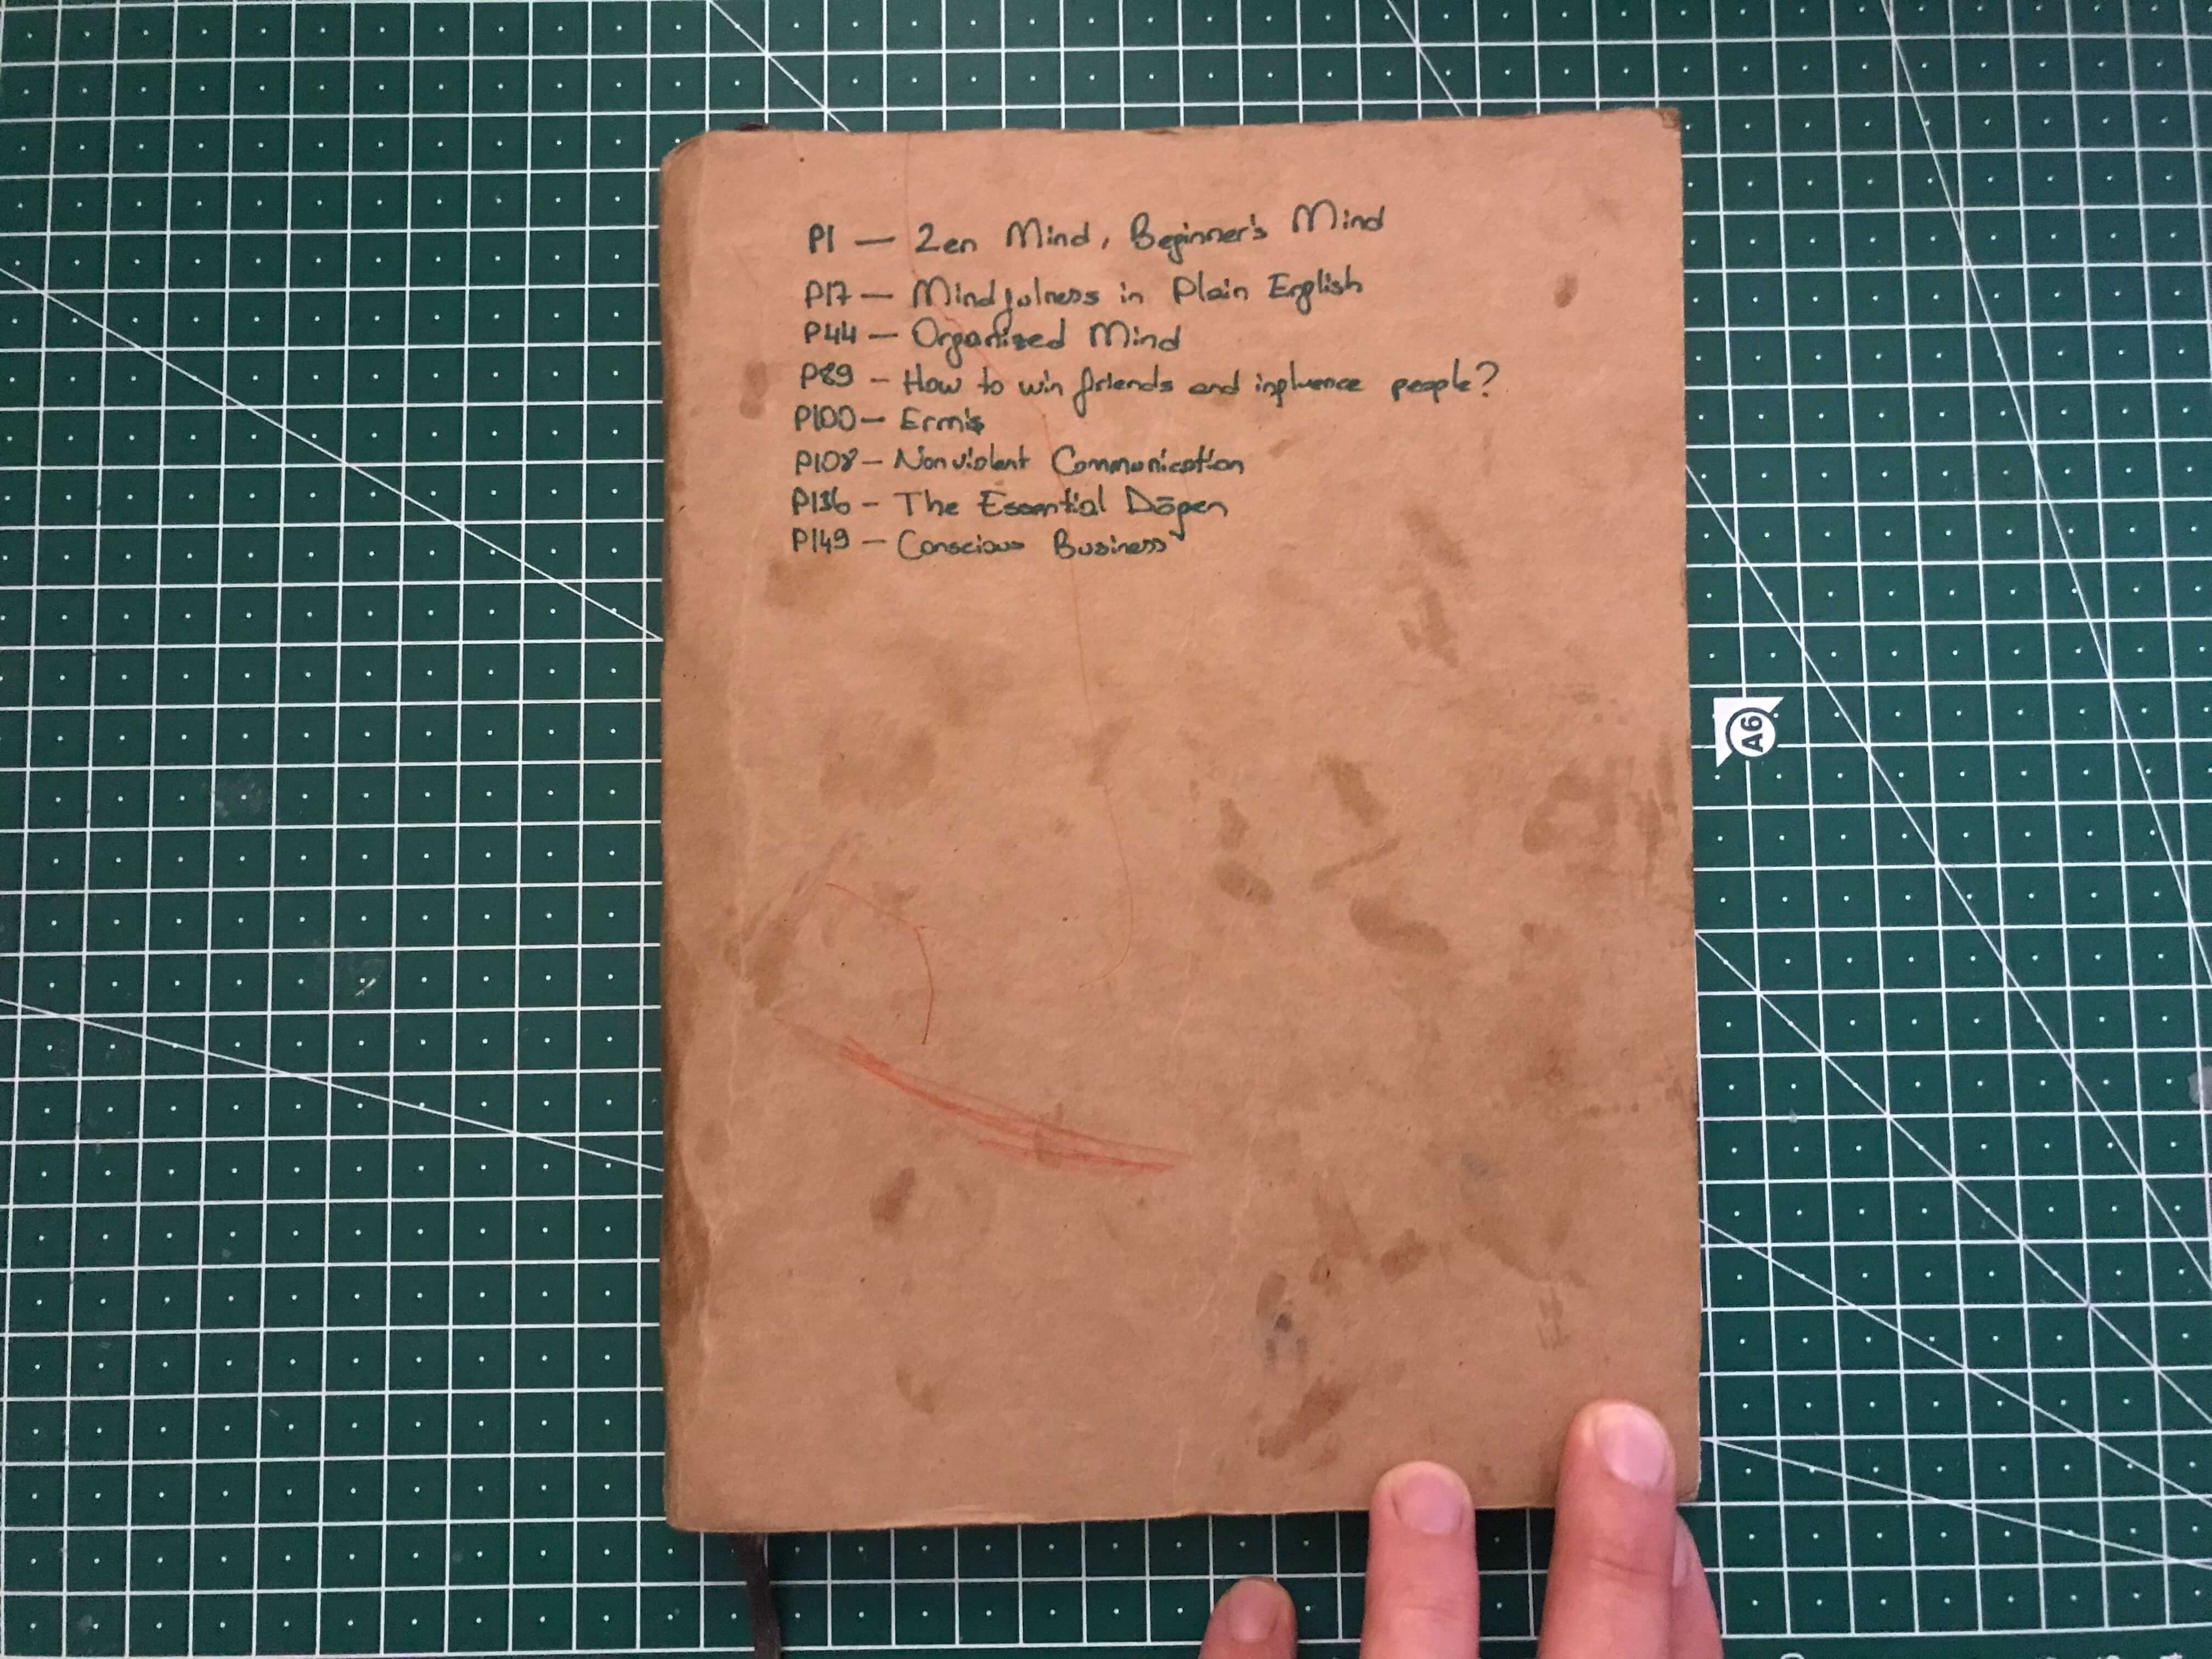 P1 — Zen Mind, Beginner's Mind
P17 — Mindfulness in Plain English
P44 — Organized Mind
P89 — How to win friends and influence people?
P100 — Ermiş
P108 — Nonviolent Communication
P136 — The Essential Dōgen
P149 — Conscious Business
A6